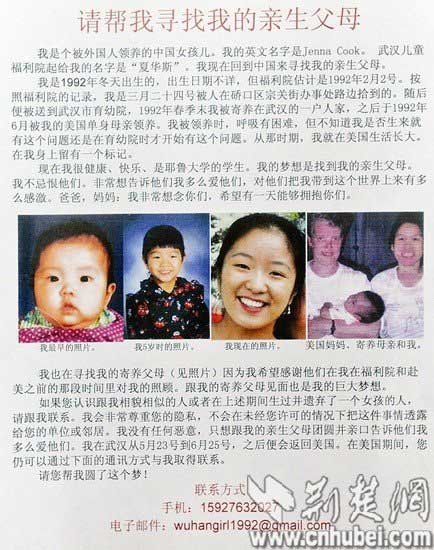 请帮我寻找我的亲生父母
我是个被外国人领养的中国女孩儿。我的英文名字是Jenna Cook。 武汉儿童
福利院起给我的名字是“夏华斯”。我现在回到中国来寻找我的亲生父母。
我是1992年冬天出生的，出生日期不详，但福利院估计是1992年2月2号。按
照福利院的记录，我是三月二十四号被人在硚口区宗关街办事处路边拾到的。随后
便被送到武汉市育幼院，1992年春季末我被寄养在武汉的一户人家，之后于1992年
6月被我的美国单身母亲领养。我被领养时，呼吸有困难，但不知道我是否生来就
有这个问题还是在育幼院时才开始有这个问题。从那时期，我就在美国生活长大。
在我身上留有一个标记。
现在我很健康、快乐、是耶鲁大学的学生。我的梦想是找到我的亲生父母。
我不忌恨他们。非常想告诉他们我多么爱他们，对他们把我带到这个世界上来有多
么感激。爸爸，妈妈：我非常想念你们，希望有一天能够拥抱你们。
我最早的照片。
我5岁时的照片。
我现在的照片。
美国妈妈、寄养母亲和我。
我也在寻找我的寄养父母（见照片）因为我希望感谢他们在我在福利院和赴
美之前的那段时间里对我的照顾。跟我的寄养父母见面也是我的巨大梦想。
如果您认识跟我相貌相似的人或者在上述期间生过并遗弃了一个女孩的人，
请跟我联系。我会非常尊重您的隐私，不会在未经您许可的情况下把这件事情透露
给您的单位或邻居。我没有任何恶意，只想跟我的亲生父母团圆并亲口告诉他们我
多么爱他们。我在武汉从5月23号到6月25号，之后便会返回美国。在美国期间，您
仍可以通过下面的通讯方式与我取得联系。
请您帮我圆了这个梦！
联系方式
手机：15927632027
电子邮件：wuhangirl1992@gmail.com
荆楚网
www.cnhubei.com